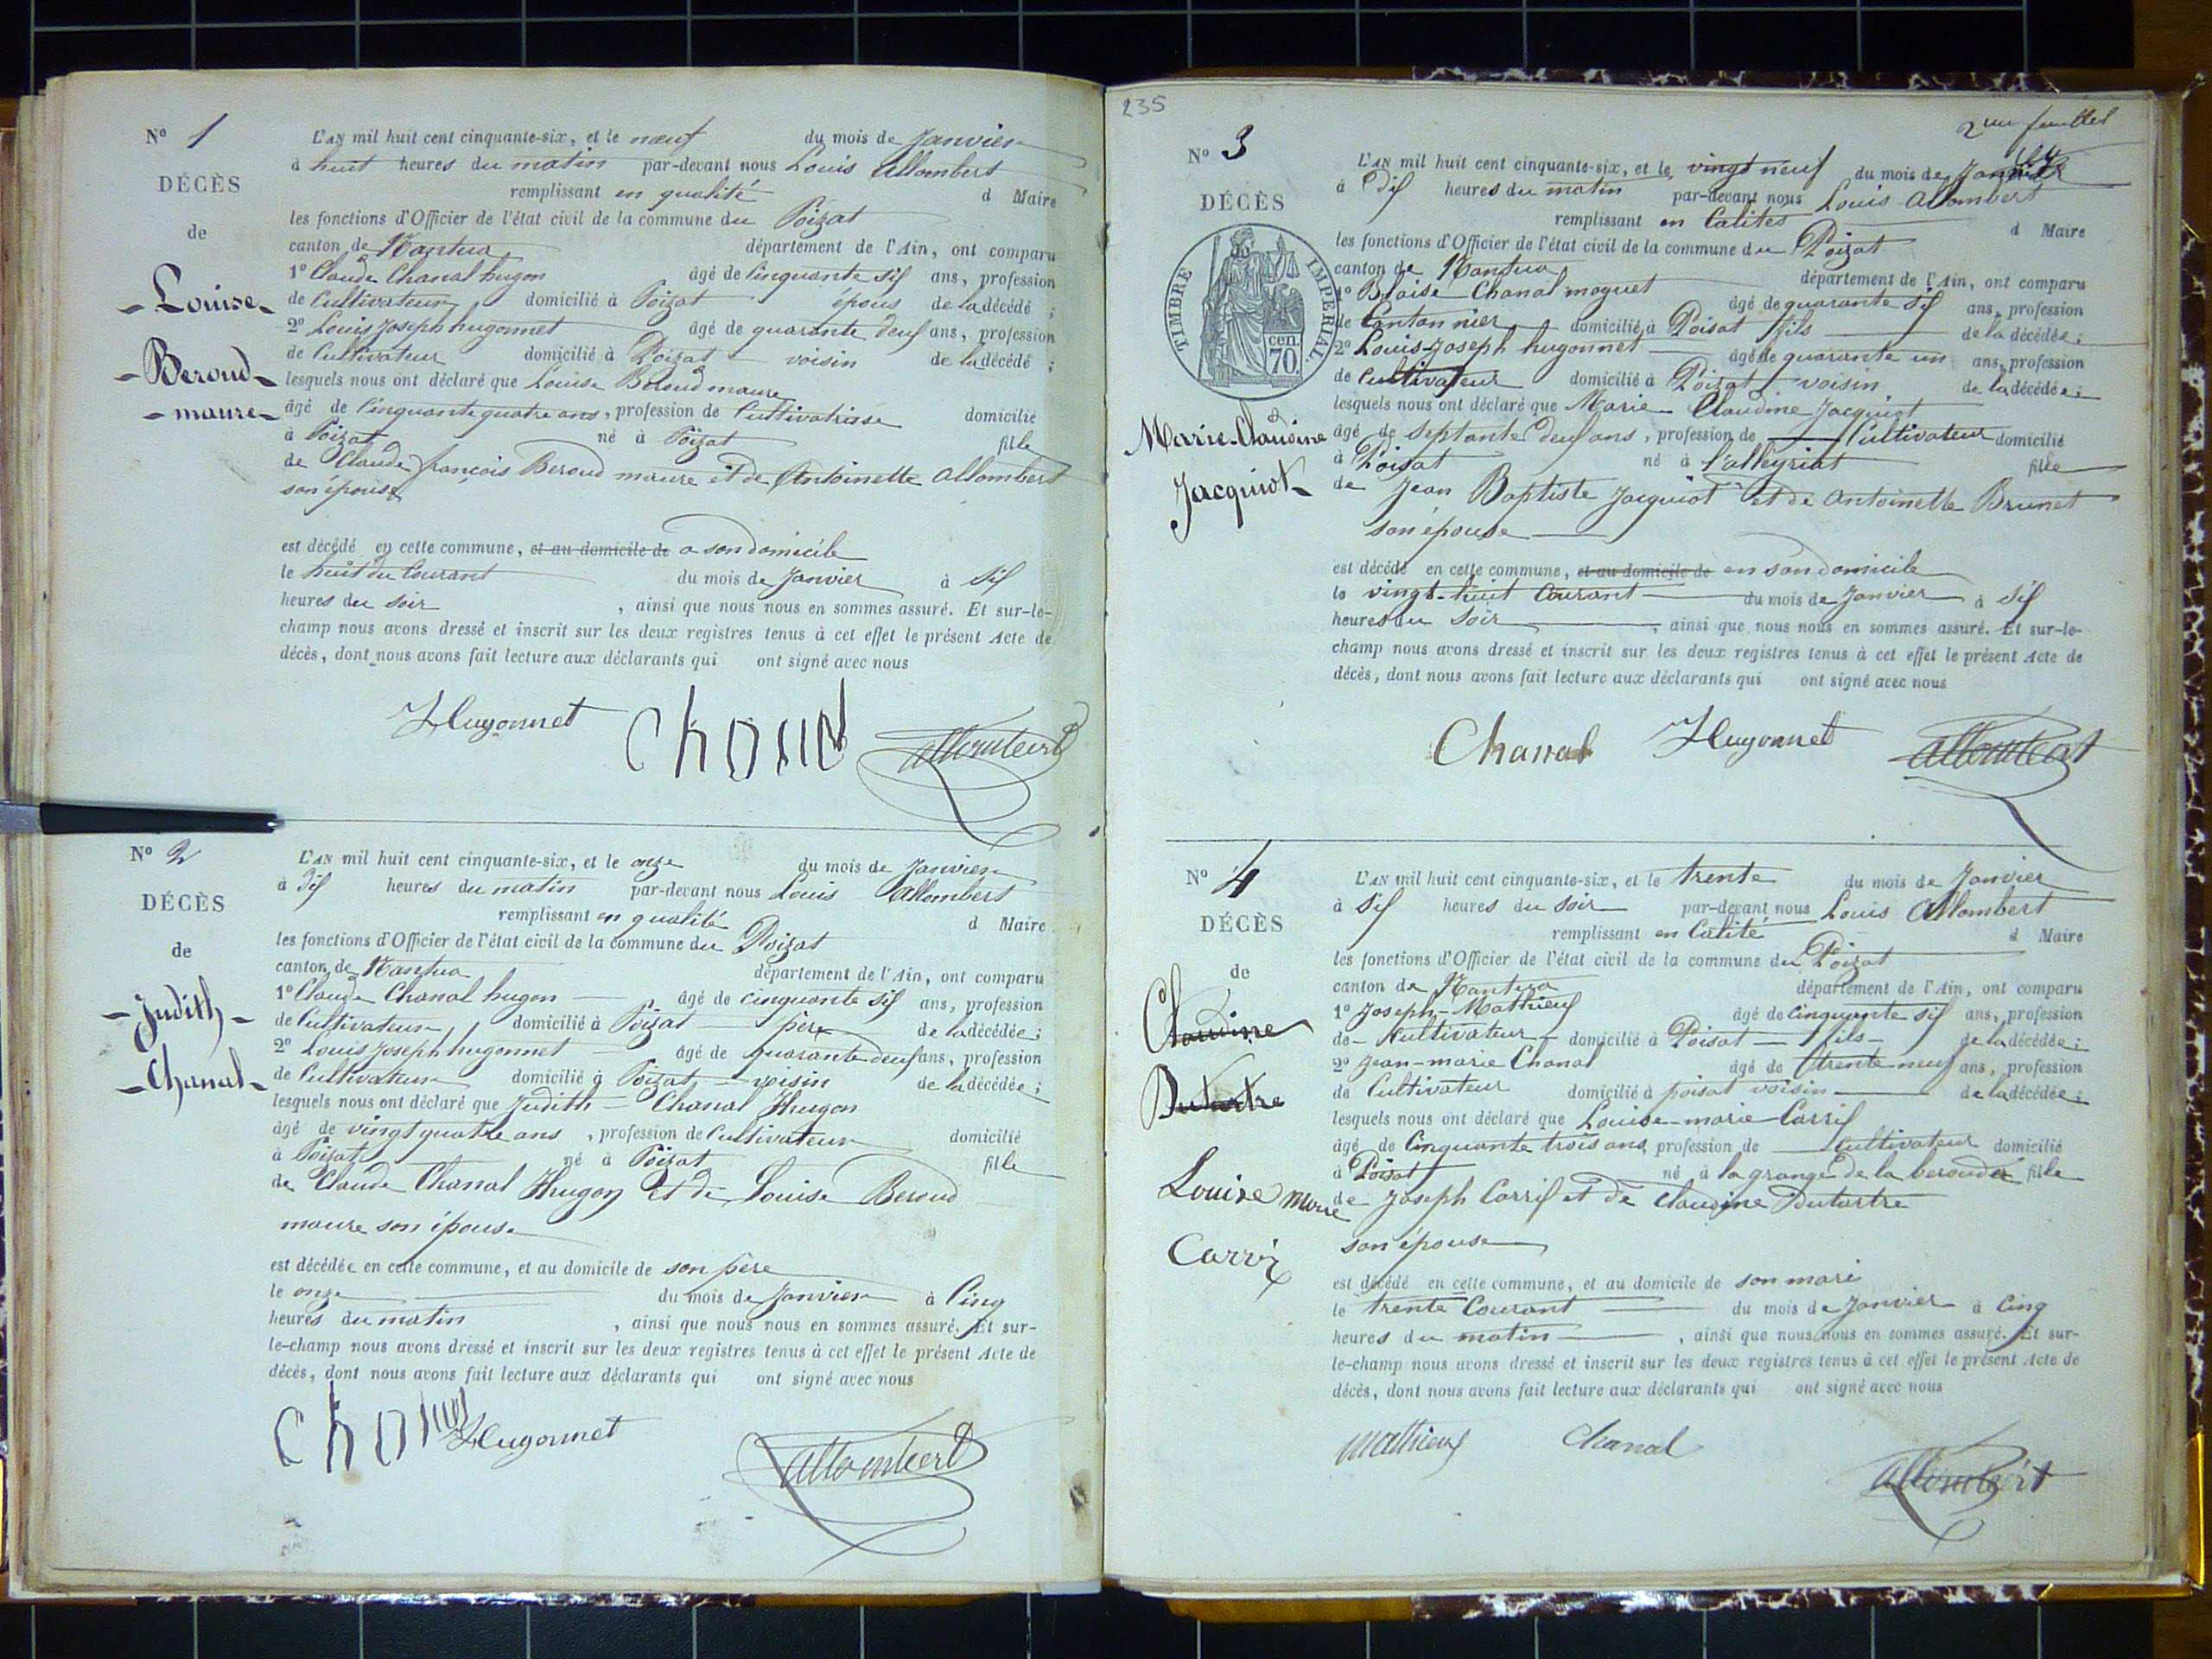 N° 1
DÉCÈS
de
- Louise -
- Beroud -
- maure -
L'AN mil huit cent cinquante-six, et le neuf du mois de Janvier
à huit heures du matin par-devant nous Louis Allombert
remplissant en qualité d Maire
les fonctions d'Officier de l'état civil de la commune du Poizat
canton de Nantua département de l'Ain, ont comparu
1° Claude Chanal hugon âgé de Cinquante six ans, profession
de Cultivateur domicilié à Poizat époux de la décédé ;
2° Louis Joseph hugonnet âgé de quarante deux ans, profession
de Cultivateur domicilié à Poizat voisin de la décédé ;
lesquels nous ont déclaré que Louise Beroud maure
âgé de Cinquante quatre ans, profession de Cultivatrisse domicilié
à Poizat né à Poizat fille
de Claude françois Beroud maure et de Antoinette Allombert
son épouse
est décédé en cette commune, et au domicile de a son domicile
le huit du Courant du mois de Janvier à Six
heures du soir , ainsi que nous nous en sommes assuré. Et sur-le-
champ nous avons dressé et inscrit sur les deux registres tenus à cet effet le présent Acte de
décès, dont nous avons fait lecture aux déclarants qui ont signé avec nous
Hugonnet Allombert
N° 2
DÉCÈS
de
- Judith -
- Chanal -
L'AN mil huit cent cinquante-six, et le onze du mois de Janvier
à Dix heures du matin par-devant nous Louis Allombert
remplissant en qualité d Maire
les fonctions d'Officier de l'état civil de la commune du Poizat
canton de Nantua département de l'Ain, ont comparu
1° Claude Chanal hugon âgé de cinquante six ans, profession
de Cultivateur domicilié à Poizat père de la décédée ;
2° Louis Joseph hugonnet âgé de quarante deux ans, profession
de Cultivateur domicilié à Poizat voisin de la décédée ;
lesquels nous ont déclaré que Judith Chanal Hugon
âgé de vingt quatre ans , profession de Cultivateur domicilié
à Poizat né à Poizat fille
de Claude Chanal Hugon et de Louise Beroud
maure son épouse
est décédée en cette commune, et au domicile de son père
le onze du mois de Janvier à Cinq
heures du matin , ainsi que nous nous en sommes assuré. Et sur-
le-champ nous avons dressé et inscrit sur les deux registres tenus à cet effet le présent Acte de
décès, dont nous avons fait lecture aux déclarants qui ont signé avec nous
Hugonnet
Allombert
235
2me feuillet
N° 3
DÉCÈS
TIMBRE IMPERIAL
cen.
70.
Marie-Claudine
Jacquiot
L'AN mil huit cent cinquante-six, et le vingt neuf du mois de Janvier
à Dix heures du matin par-devant nous Louis Allombert
remplissant en Calites d Maire
les fonctions d'Officier de l'état civil de la commune du Poizat
canton de Nantua département de l'Ain, ont comparu
1° Blaise Chanal moguet âgé de quarante six ans, profession
de Cantonnier domicilié à Poisat fils de la décédée ;
2° Louis-Joseph hugonnet âgé de quarante un ans, profession
de Cultivateur domicilié à Poizat voisin de la décédée ;
lesquels nous ont déclaré que Marie-Claudine Jacquiot
âgé de Septante deux ans, profession de Cultivateur domicilié
à Poisat né à l'alleyriat fille
de Jean Baptiste Jacquiot et de Antoinette Brunet
son épouse
est décédé en cette commune, et au domicile de en son domicile
le vingt-huit Courant du mois de Janvier à Six
heures du Soir , ainsi que nous nous en sommes assuré. Et sur-le-
champ nous avons dressé et inscrit sur les deux registres tenus à cet effet le présent Acte de
décès, dont nous avons fait lecture aux déclarants qui ont signé avec nous
Chanal Hugonnet Allombert
N° 4
DÉCÈS
de
Claudine
Dutartre
Louise Marie
Carrix
L'AN mil huit cent cinquante-six, et le trente du mois de Janvier
à Six heures du Soir par-devant nous Louis Allombert
remplissant en Calité d Maire
les fonctions d'Officier de l'état civil de la commune du Poizat
canton de Nantua département de l'Ain, ont comparu
1° Joseph-Mathieux âgé de Cinquante six ans, profession
de Cultivateur domicilié à Poisat - fils - de la décédée ;
2° Jean-marie Chanal âgé de trente-neuf ans, profession
de Cultivateur domicilié à poisat voisin de la décédée ;
lesquels nous ont déclaré que Louise-marie Carrix
âgé de Cinquante trois ans, profession de Cultivateur domicilié
à Poizat né à la grange de la beroudes fille
de Joseph Carrix et de Claudine Dutartre
son épouse
est décédé en cette commune, et au domicile de son mari
le trente Courant du mois de Janvier à Cinq
heures du matin , ainsi que nous nous en sommes assuré. Et sur-
le-champ nous avons dressé et inscrit sur les deux registres tenus à cet effet le présent Acte de
décès, dont nous avons fait lecture aux déclarants qui ont signé avec nous
Mathieux Chanal
Allombert